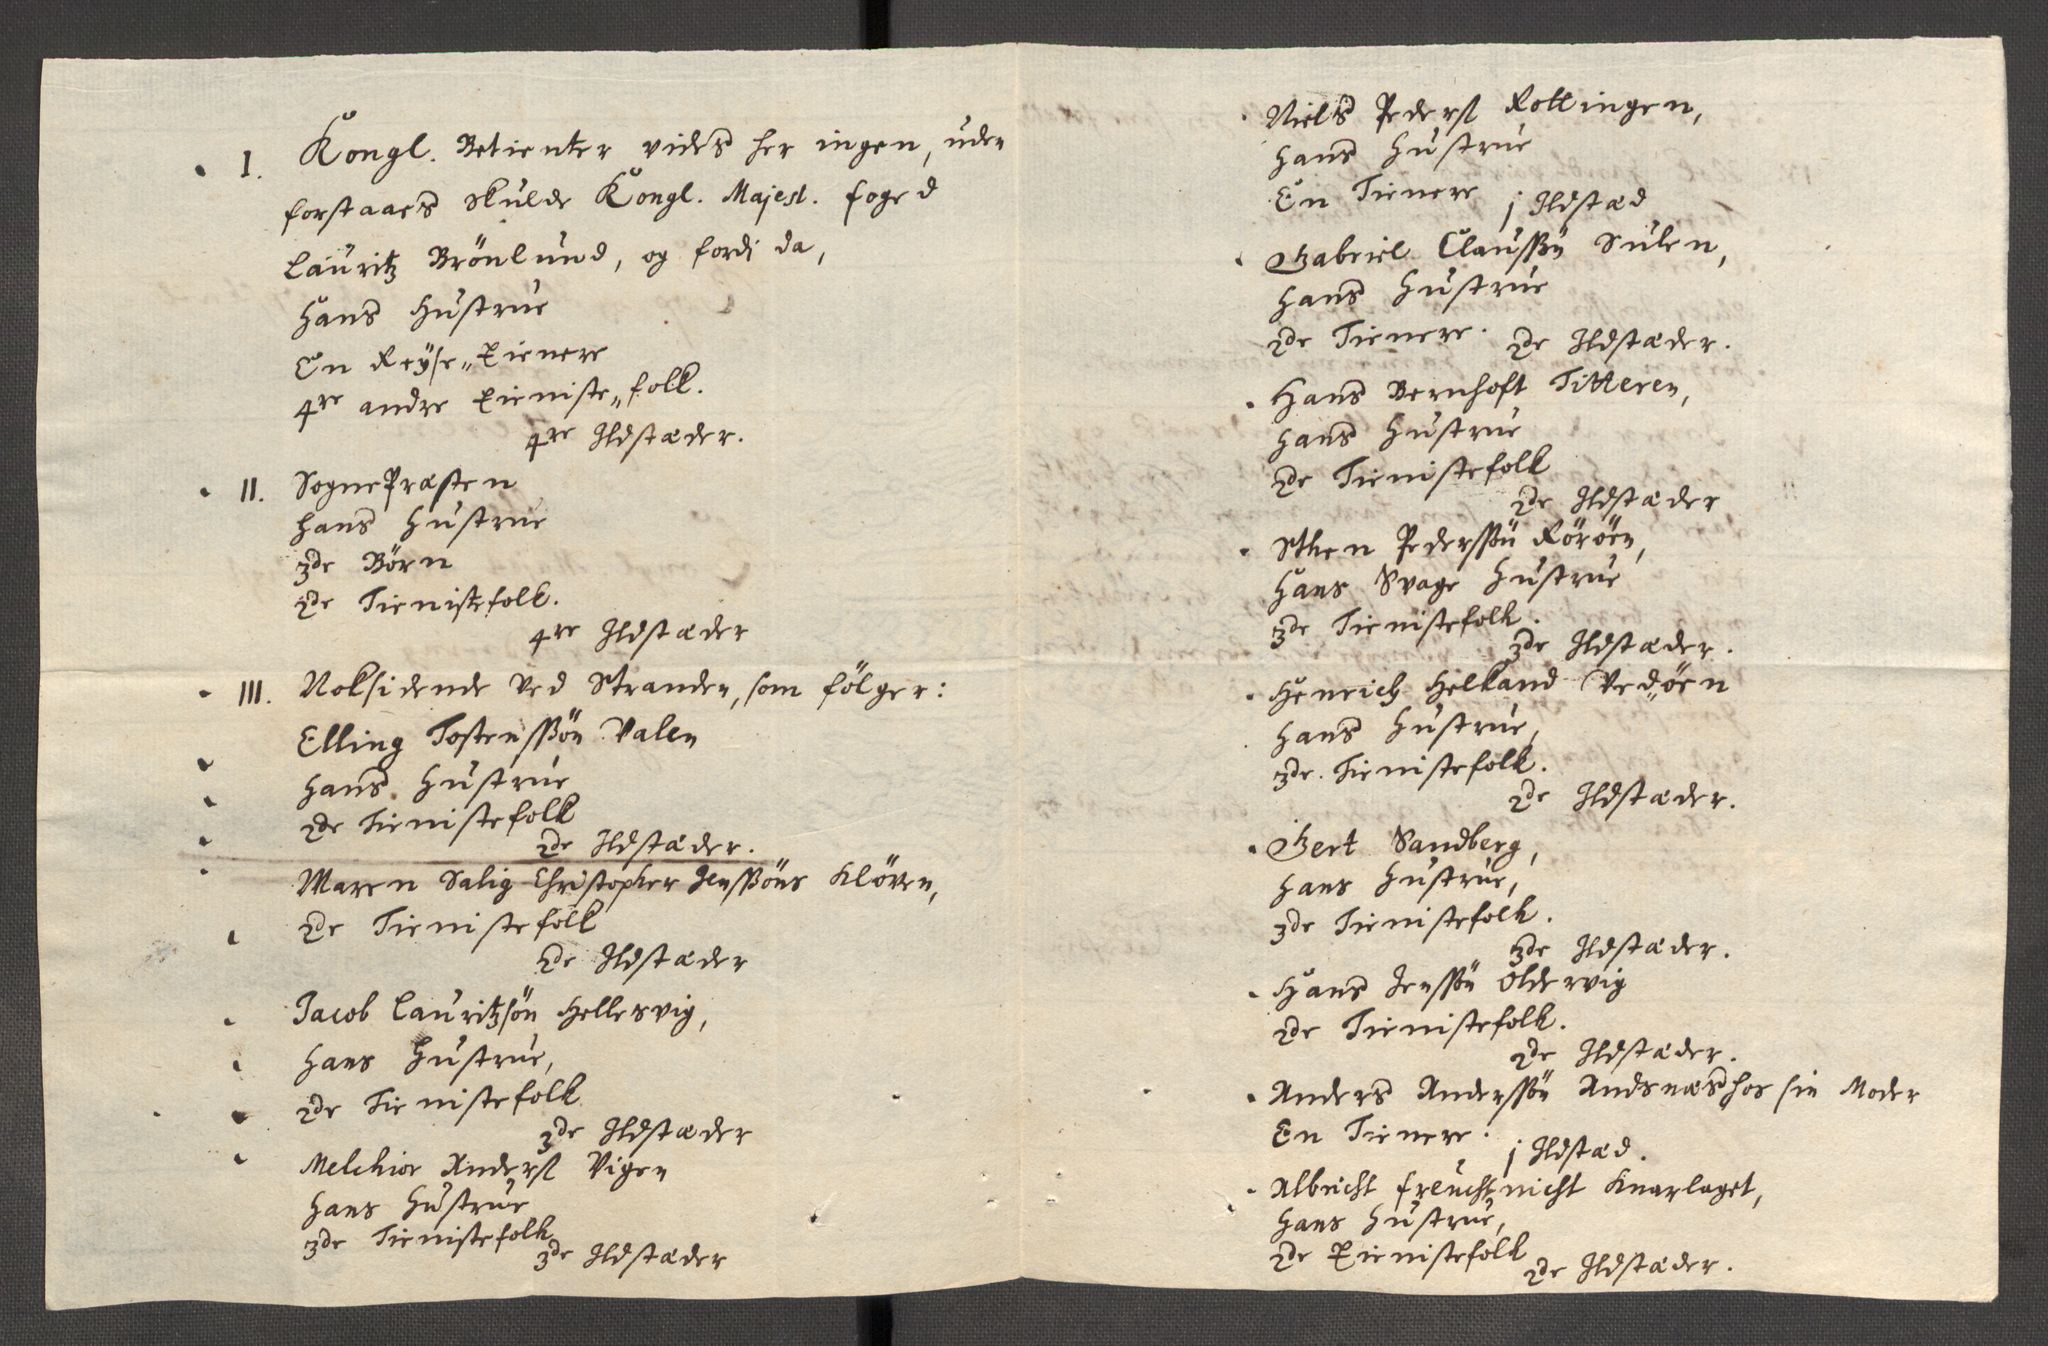 I. Kongl. Betienter vides her ingen, uden
forstaaes skulde Kongl. Majest. foged
Lauritz Brönlund, og fordi da,
Hans Hustrue
En Reyse„tienere
4re andre tieniste„folk.
4re Ildstæder.
II. SognePræsten
hans Hustrue
3de Börn
2de Tienistefolk.
4re Ildstæder
III. Boksidende ved Stranden, som fölger:
Elling Tostenssön Valen
hans Hustrue
2de Tienistefolk
2de Ildstæder.
Maren Salig Christopher Jenssöns Klöven,
2de Tienistefolk
2de Ildstæder
Jacob Lauritzsön Hellesvig,
hans Hustrue,
2de Tienistefolk
3de Ildstæder
Melchior Anders: Vigen
hans Hustrue
3de Tienistefolk
3de Ildstæder
Niels Peders: Rottingen,
hans Hustrue
En Tienere
j Ildstæd
Gabriel Claussön Sulen,
hans Hustrue
2de Tienere.
2de Ildstæder.
Hans Bernhoft Titteren,
hans Hustrue
2de Tienistefolk
2de Ildstæder
Sthen Pederssön Röröen,
Hans Svage Hustrue
3de Tienistefolk.
3de Ildstæder.
Henrich Helkand Vedöen
hans Hustrue,
3de. Tienistefolk.
2de Ildstæder.
Gert Sandberg,
hans Hustrue,
3de Tienistefolk.
3de Ildstæder.
Hans Jenssön Oldervig
2de Tienistefolk.
2de Ildstæder.
Anders Anderssön Andsnæs hos sin Moder
En Tienere.
j Ildstæd.
Albricht freuchtnicht Knarlaget,
hans Hustrue,
2de Tienistefolk
2de Ildstæder.